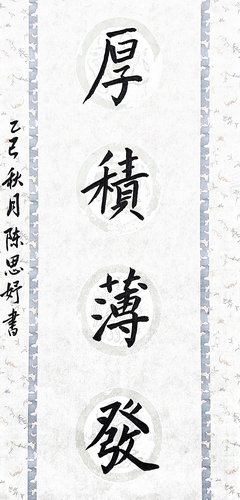 厚積薄發
乙巳秋月陈思妤書